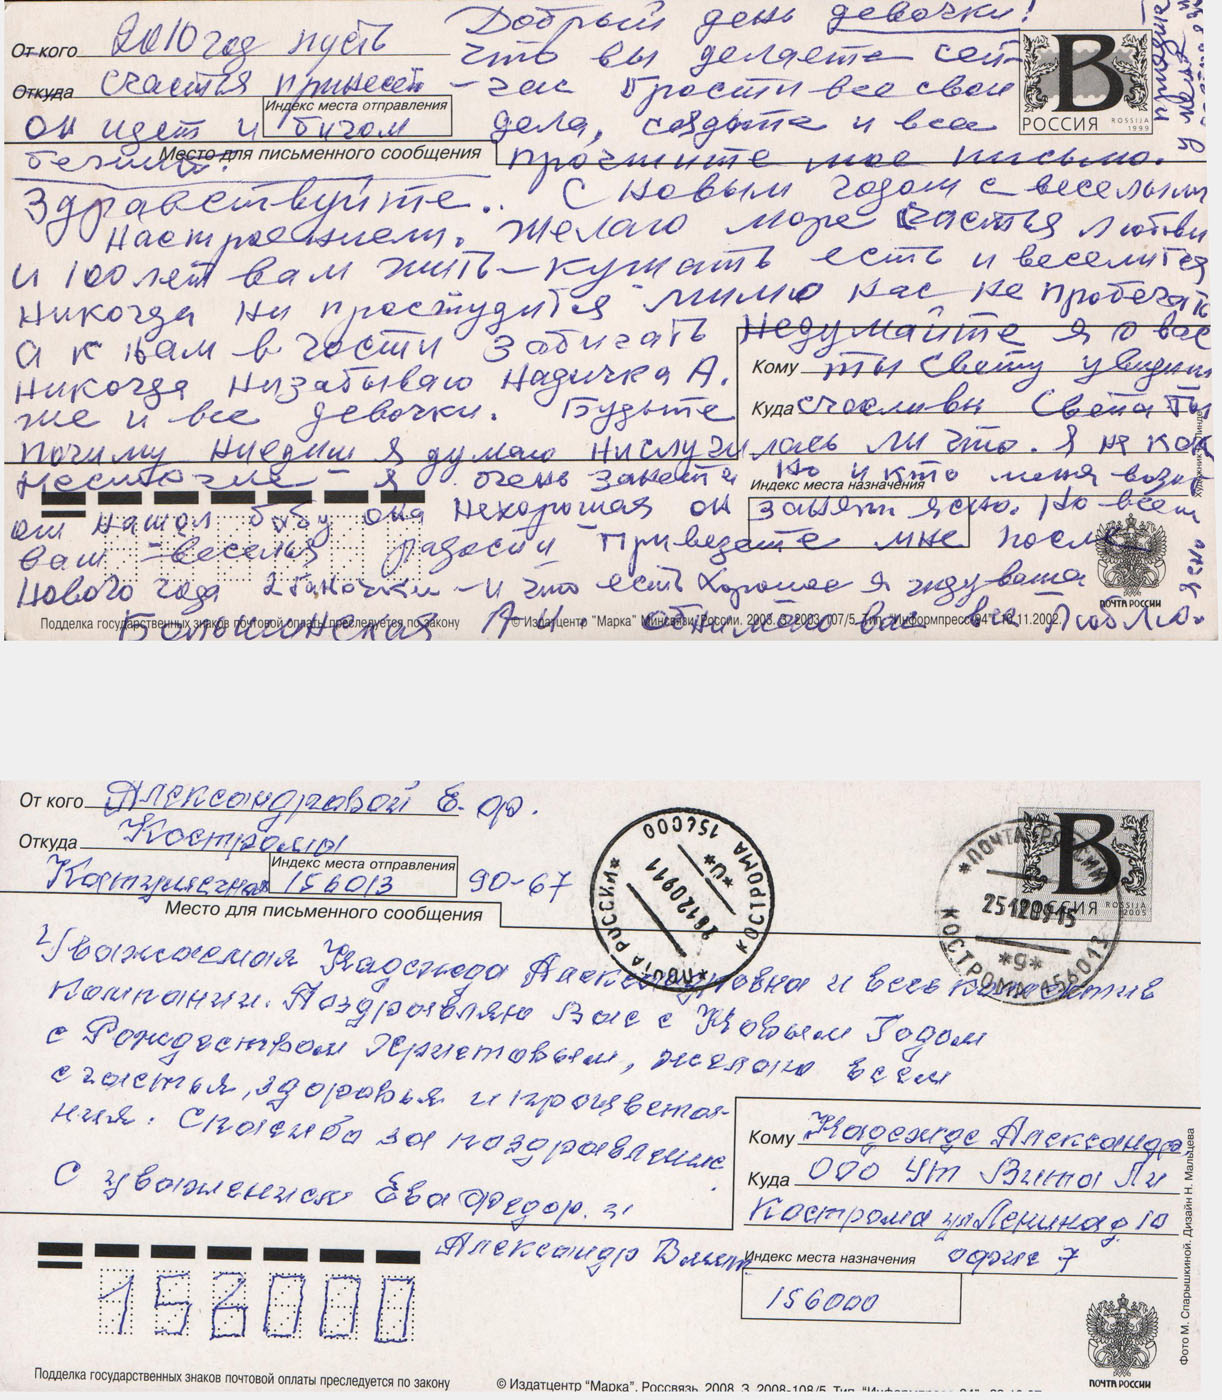 Добрый день девочки!
От кого 2010 год пусть
что вы делаете сей-
Откуда счастья принесет
-час Брости все свои
Индекс места отправления
он идет и бигом
дела, и все
РОССИЯ
ROSSIJA
1999
Место для письменного сообщения
прочтите мое письмо.
Здравствуйте.. С новым годом с веселым
настроением. Желаю море счастья любви
и 100 лет вам жить-кушать есть и веселится
никогда ни простудится мимо нас не пробегать
а к нам в гости забигать Недумайте я о вас
Кому ты Свету увидиш
никогда низабываю Надичка А.
же и все девочки. Будьте
Куда счасливы Света ты
почиму ниедиш я думаю нислучилась ли что. Я не как
я очень занета но и кто меня возит
Индекс места назначения
он нашол бабу она нехорошая он занят ясно. Но всем
вам веселья радости Приведете мне после
Нового года 2 баночки - и что есть хорошее я жду вашa
ПОЧТА РОССИИ
Подделка государственных знаков почтовой оплаты преследуется по закону
© Издатцентр "Марка" Минсвязи России. 2003. З. 2003-107/5. Тип. "Информпресс-94". 10.11.2002.
Большинская А Н. Обнимаю вас все Люблю.
От кого Александровой Е. фр.
Откуда Костромы
Индекс места отправления
156013 90-67
Место для письменного сообщения
ПОЧТА РОССИИ
156000
КОСТРОМА
ПОЧТА РОССИИ
КОСТРОМА 156013
РОССИЯ
ROSSIJA
2005
Уважаемая Надежда Александровна и весь коллектив
компании. Поздравляю Вас с Новым Годом
с Рождеством Христовым, желаю всем
счастья, здоровья и процвета-
ния. Спасибо за поздравление.
С уважением Ева Федор. и
Александр Вик
Кому Надежде Александр
Куда ООО Ут Вита Ли
Кострома ул Ленина д 10
Индекс места назначения офис 7
156000
156000
Фото М. Спарышкиной. Дизайн Н. Мальцева
ПОЧТА РОССИИ
Подделка государственных знаков почтовой оплаты преследуется по закону
© Издатцентр "Марка". Россвязь. 2008. З. 2008-108/5. Тип.